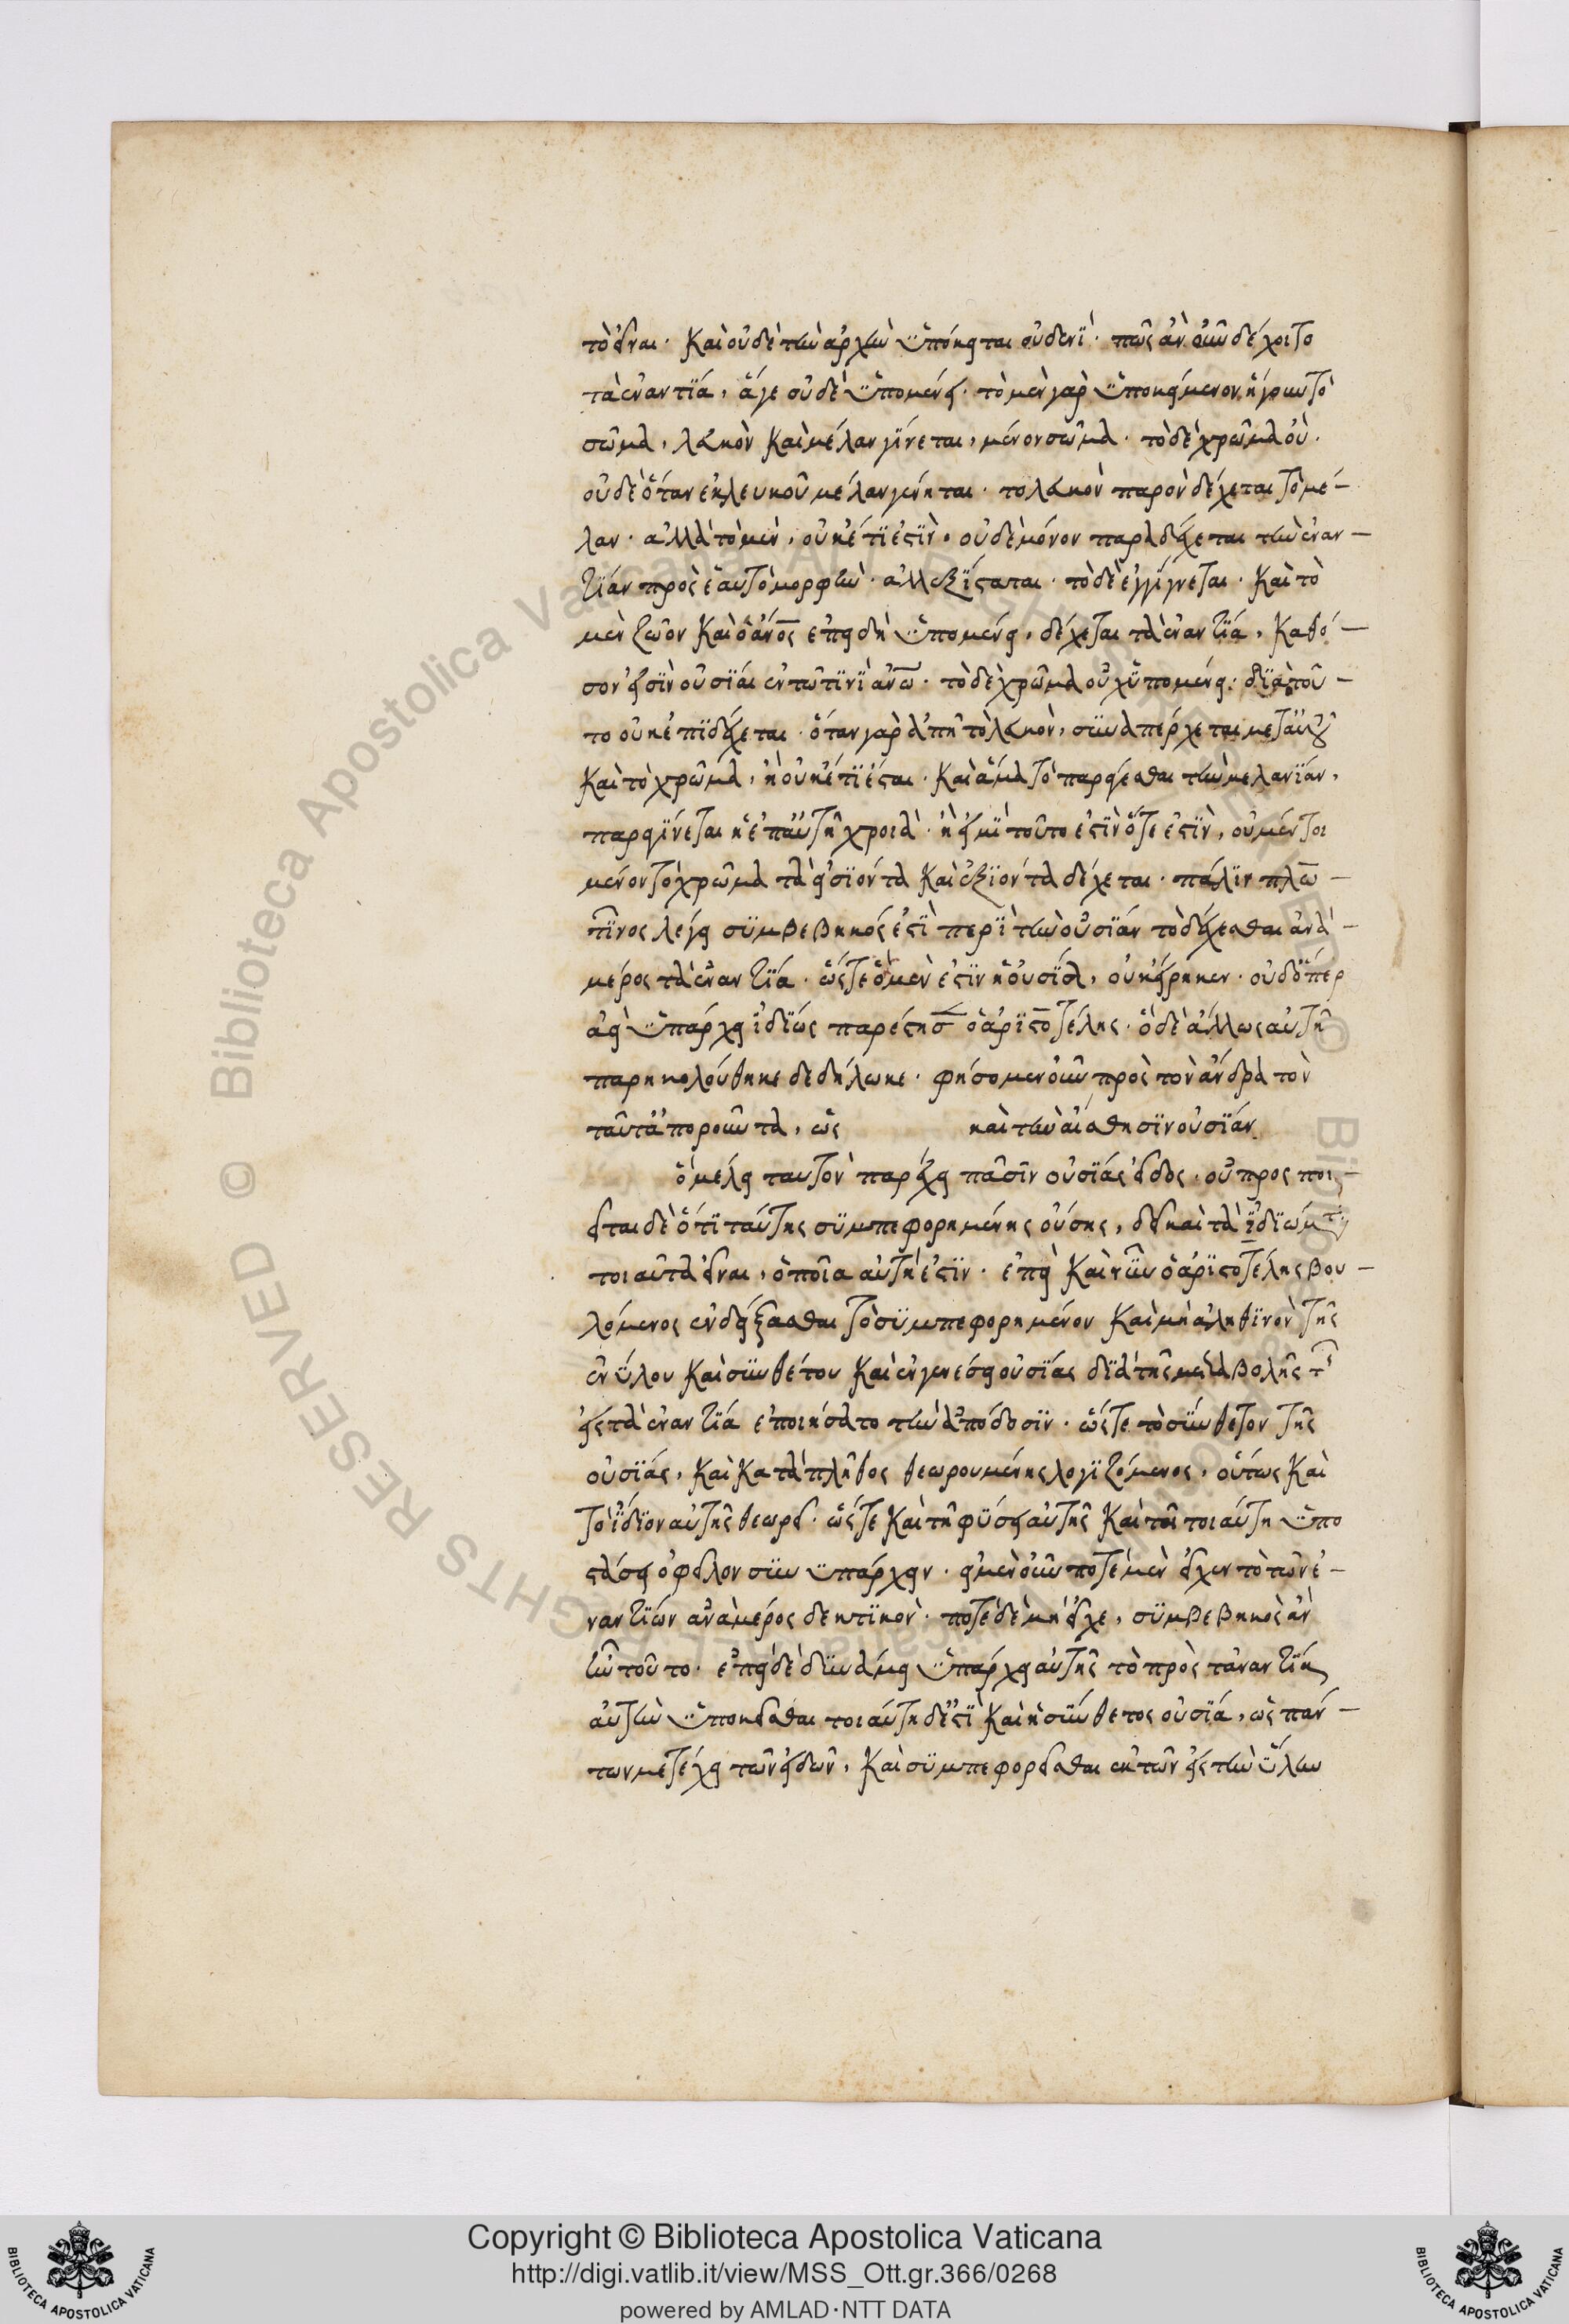 τὸ εἶναι· καὶ οὐδὲ τὴν ἀρχὴν ὑπόκειται οὐδενὶ· πῶς ἂν οὖν δέχοιτο
τὰ ἐναντία, ἅγε οὐδὲ ὑπομένει· τὸ μὲν γὰρ ὑποκείμενον ἤγουν τὸ
σῶμα, λευκὸν καὶ μέλαν γίνεται, μένον σῶμα· τὸ δὲ χρῶμα οὐ·
οὐδὲ ὅταν ἐκ λευκοῦ μέλαν γένηται· το λευκὸν παρὸν δέχεται τὸ μέ-
λαν· ἀλλὰ τὸ μὲν, οὐκέτι ἐστὶν· οὐδὲ μόνον παραδέχεται τὴν ἐναν-
τίαν πρὸς ἑαυτὸ μορφὴν· ἀλλ' ἐξίσταται· τὸ δὲ ἐγγίγνεται· καὶ τὸ
μὲν ζῶον καὶ ὁ ἄνος ἐπειδὴ ὑπομένει, δέχεται τὰ ἐναντία, καθό-
σον εἰσὶν οὐσίαι ἐν τῶ τινὶ ἀνω· τὸ δὲ χρῶμα οὐχ ὑπομένει· διὰ τοῦ-
το οὐκ ἐπιδέχεται· ὅταν γὰρ ἀπῆ τὸ λευκὸν, συναπέρχεται μετ' αὐτοῦ
καὶ τὸ χρῶμα, ἢ οὐκέτι ἔσται· καὶ ἅμα τὸ παρεῖεσθαι τὴν μελανίαν,
παρεγίνεται ἡ ἐπ' αὐτῆ χροιὰ· ἢ εἰ μὴ τοῦτο ἐστὶν ὅτε ἐστὶν, οὐ μέντοι
μένον τὸ χρῶμα τὰ εἰσιόντα καὶ ἐξιόντα δέχεται· πάλιν πλω-
τῖνος λέγει συμβεβηκός ἐστὶ περὶ τὴν οὐσίαν τὸ δέχεσθαι ἀνὰ-
μέρος τὰ ἐναντία· ὥστε ὃ μὲν ἐστὶν ἡ οὐσία, οὐκ εἴρηκεν· οὐδ' ὅπερ
ἀεὶ ὑπάρχει ἰδίως παρέστησ ὁ ἀριστοτέλης· ὃ δὲ ἄλλως αὐτῆ
παρηκολούθηκε δεδήλωκε· φήσομεν οὖν πρὸς τὸν ἄνδρα τὸν
ταῦτ' ἀποροῦντα, ὡς καὶ τὴν αἰσθησιν οὐσίαν
ὃ μέλει ταυτὸν παρέχει πᾶσιν οὐσίας εἶδος· οὐ προςποι-
εῖται δὲ ὅτι ταύτης συμπεφορημένης οὔσης, δεῖ καὶ τὰ ἰδιώματα
τοιαῦτα εἶναι, ὁποῖα αὐτὴ ἐστὶν· ἐπεὶ καὶ νῦν ὁ ἀριστοτέλης βου-
λόμενος ἐνδείξασθαι τὸ συμπεφορημένον καὶ μὴ ἀληθινὸν τῆς
ἐνύλου καὶ συνθέτου καὶ ἐν γενέσει οὐσίας διὰ τῆς μεταβολῆς τ
εἰς τὰ ἐναντία ἐποιήσατο τὴν ἀπόδοσιν· ὥστε τὸ σύνθετον τῆς
οὐσίας, καὶ κατὰ πλῆθος θεωρουμένης λογιζόμενος, οὕτως καὶ
τὸ ἴδιον αὐτῆς θεωρεῖ· ὥστε καὶ τῆ φύσει αὐτῆς καὶ τῆ τοιαύτη ὑπο
στάσει ὀφεῖλον συνυπάρχειν· εἰ μὲν οὖν ποτὲ μὲν εἶχεν τὸ τῶν ἐ-
ναντίων ἀνὰ μέρος δεκτικὸν· ποτὲ δὲ μὴ εἶχε, συμβεβηκὸς ἂν
ἦν τοῦτο· ἐπεὶ δὲ δυνάμει ὑπάρχει αὐτῆς τὸ πρὸς τἀναντία
αὐτὴν ὑποκεῖσθαι τοιαύτη δ' ἐστὶ καὶ ἡ σύνθετος οὐσία, ὡς πάν-
των μετέχει τῶν εἰδῶν, καὶ συμπεφορεῖσθαι ἐκ τῶν εἰς τὴν ὕλην
Copyright © Biblioteca Apostolica Vaticana
http://digi.vatlib.it/view/MSS_Ott.gr.366/0268
powered by AMLAD·NTT DATA